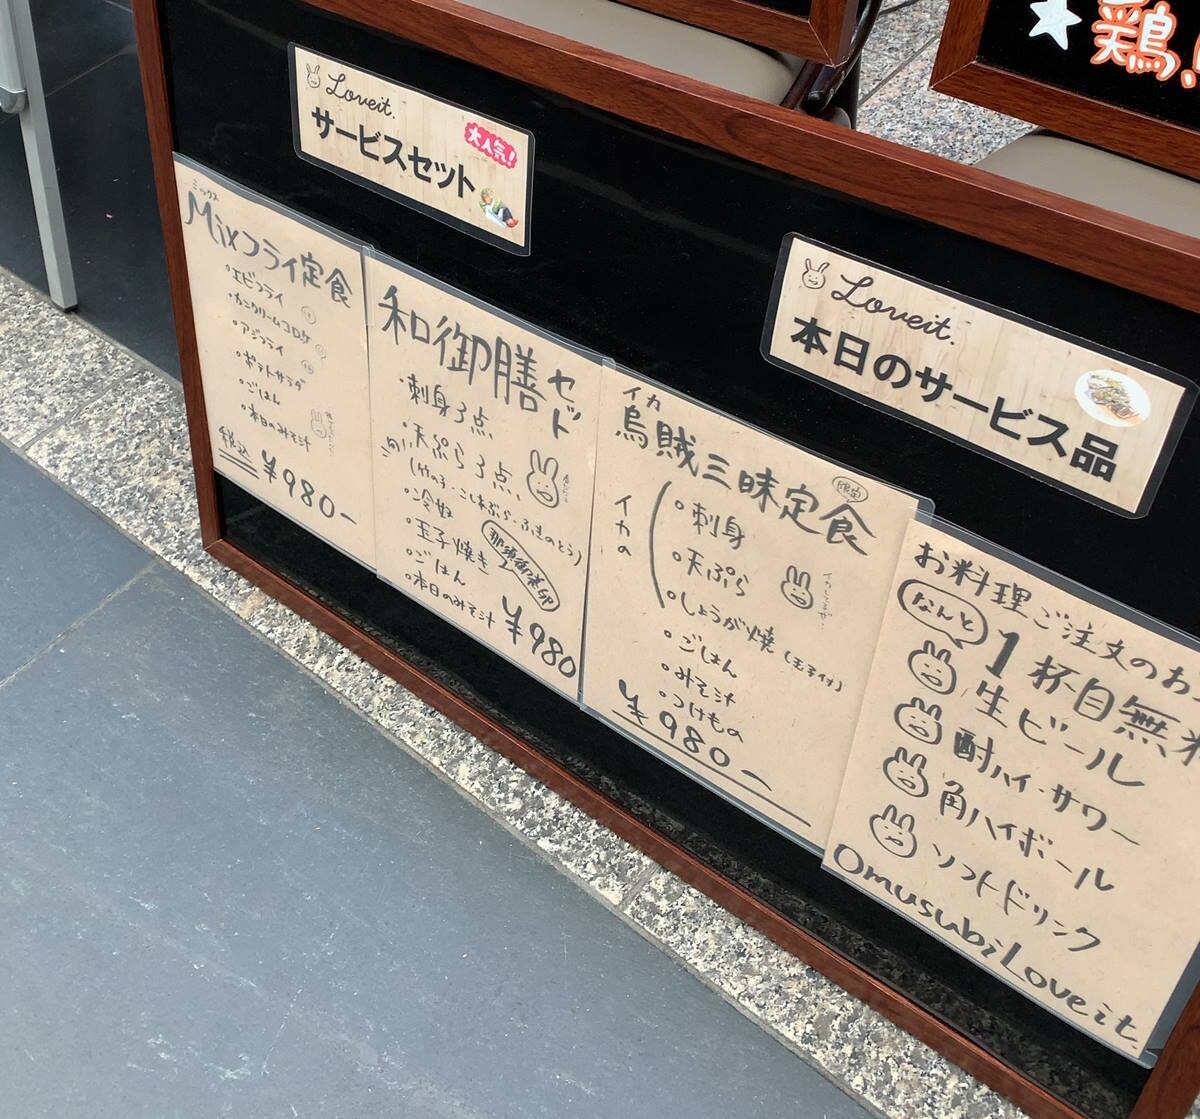 鶏!
Loveit.
サービスセット
大人気!
Loveit.
本日のサービス品
ミックス
Mixフライ定食
・エビフライ
・カニクリームコロッケ
・アジフライ
・ポテトサラダ
・ごはん
・本日のみそ汁
税込 ¥980-
和御膳セット
・刺身3点
・天ぷら3点
(竹の子・こしあぶら・ふきのとう)
・冷奴
・玉子焼き
那須御養卵
・ごはん
・本日のみそ汁
¥980
イカ
烏賊三昧定食
限定
イカの
・刺身
・天ぷら
・しょうが焼(玉子付)
・ごはん
・みそ汁
・つけもの
¥980-
お料理ご注文のお
なんと
1杯目無料
生ビール
酎ハイ・サワー
角ハイボール
ソフトドリンク
Omusubi Loveit.